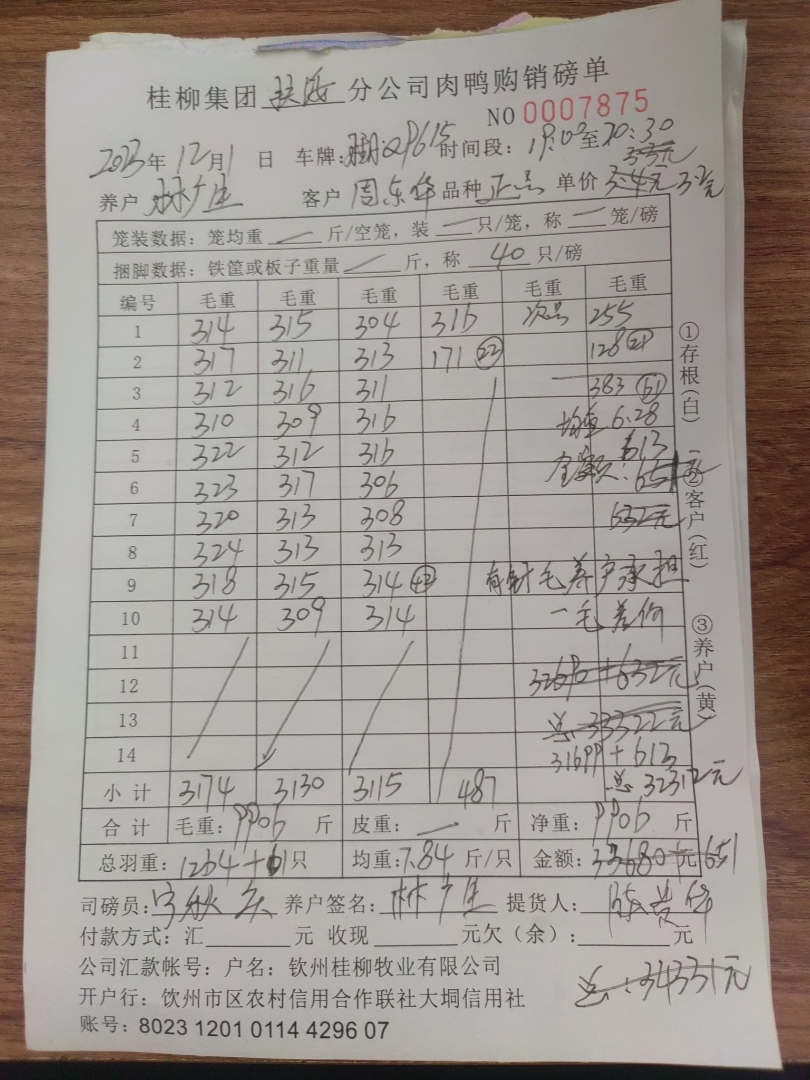 桂柳集团 扶隆 分公司肉鸭购销磅单
NO 0007875
2023年 12月1日 车牌: P615 时间段: 19:00至20:30
3.3元
养户 林广生 客户 周东华 品种 正品 单价 3.4元 3.2元
笼装数据: 笼均重 — 斤/空笼, 装 — 只/笼, 称 — 笼/磅
捆脚数据: 铁筐或板子重量 — 斤, 称 40 只/磅
编号 毛重 毛重 毛重 毛重 毛重 毛重
1 314 315 304 316 次品 255
2 317 311 313 171 (22) 128 (21)
3 312 316 311 383 (61)
4 310 309 316 均重 6.28
5 322 312 316 金额: 613 651元
6 323 317 306
7 320 313 308 632元
8 324 313 313
9 318 315 314 (42) 有针毛养户承担
10 314 309 314 一毛差价
11
12 32690+632元
13 总 33322元
14 31699+613
小计 3174 3130 3115 487 总 32312元
合计 毛重: 9906 斤 皮重: — 斤 净重: 9906 斤
总羽重: 1264+61只 均重: 7.84 斤/只 金额: 33680元+651
司磅员: 养户签名: 林广生 提货人:
付款方式: 汇 元 收现 元欠(余): 元
公司汇款帐号: 户名: 钦州桂柳牧业有限公司
总: 34331元
开户行: 钦州市区农村信用合作联社大垌信用社
账号: 8023 1201 0114 4296 07
①存根(白) ②客户(红) ③养户(黄)